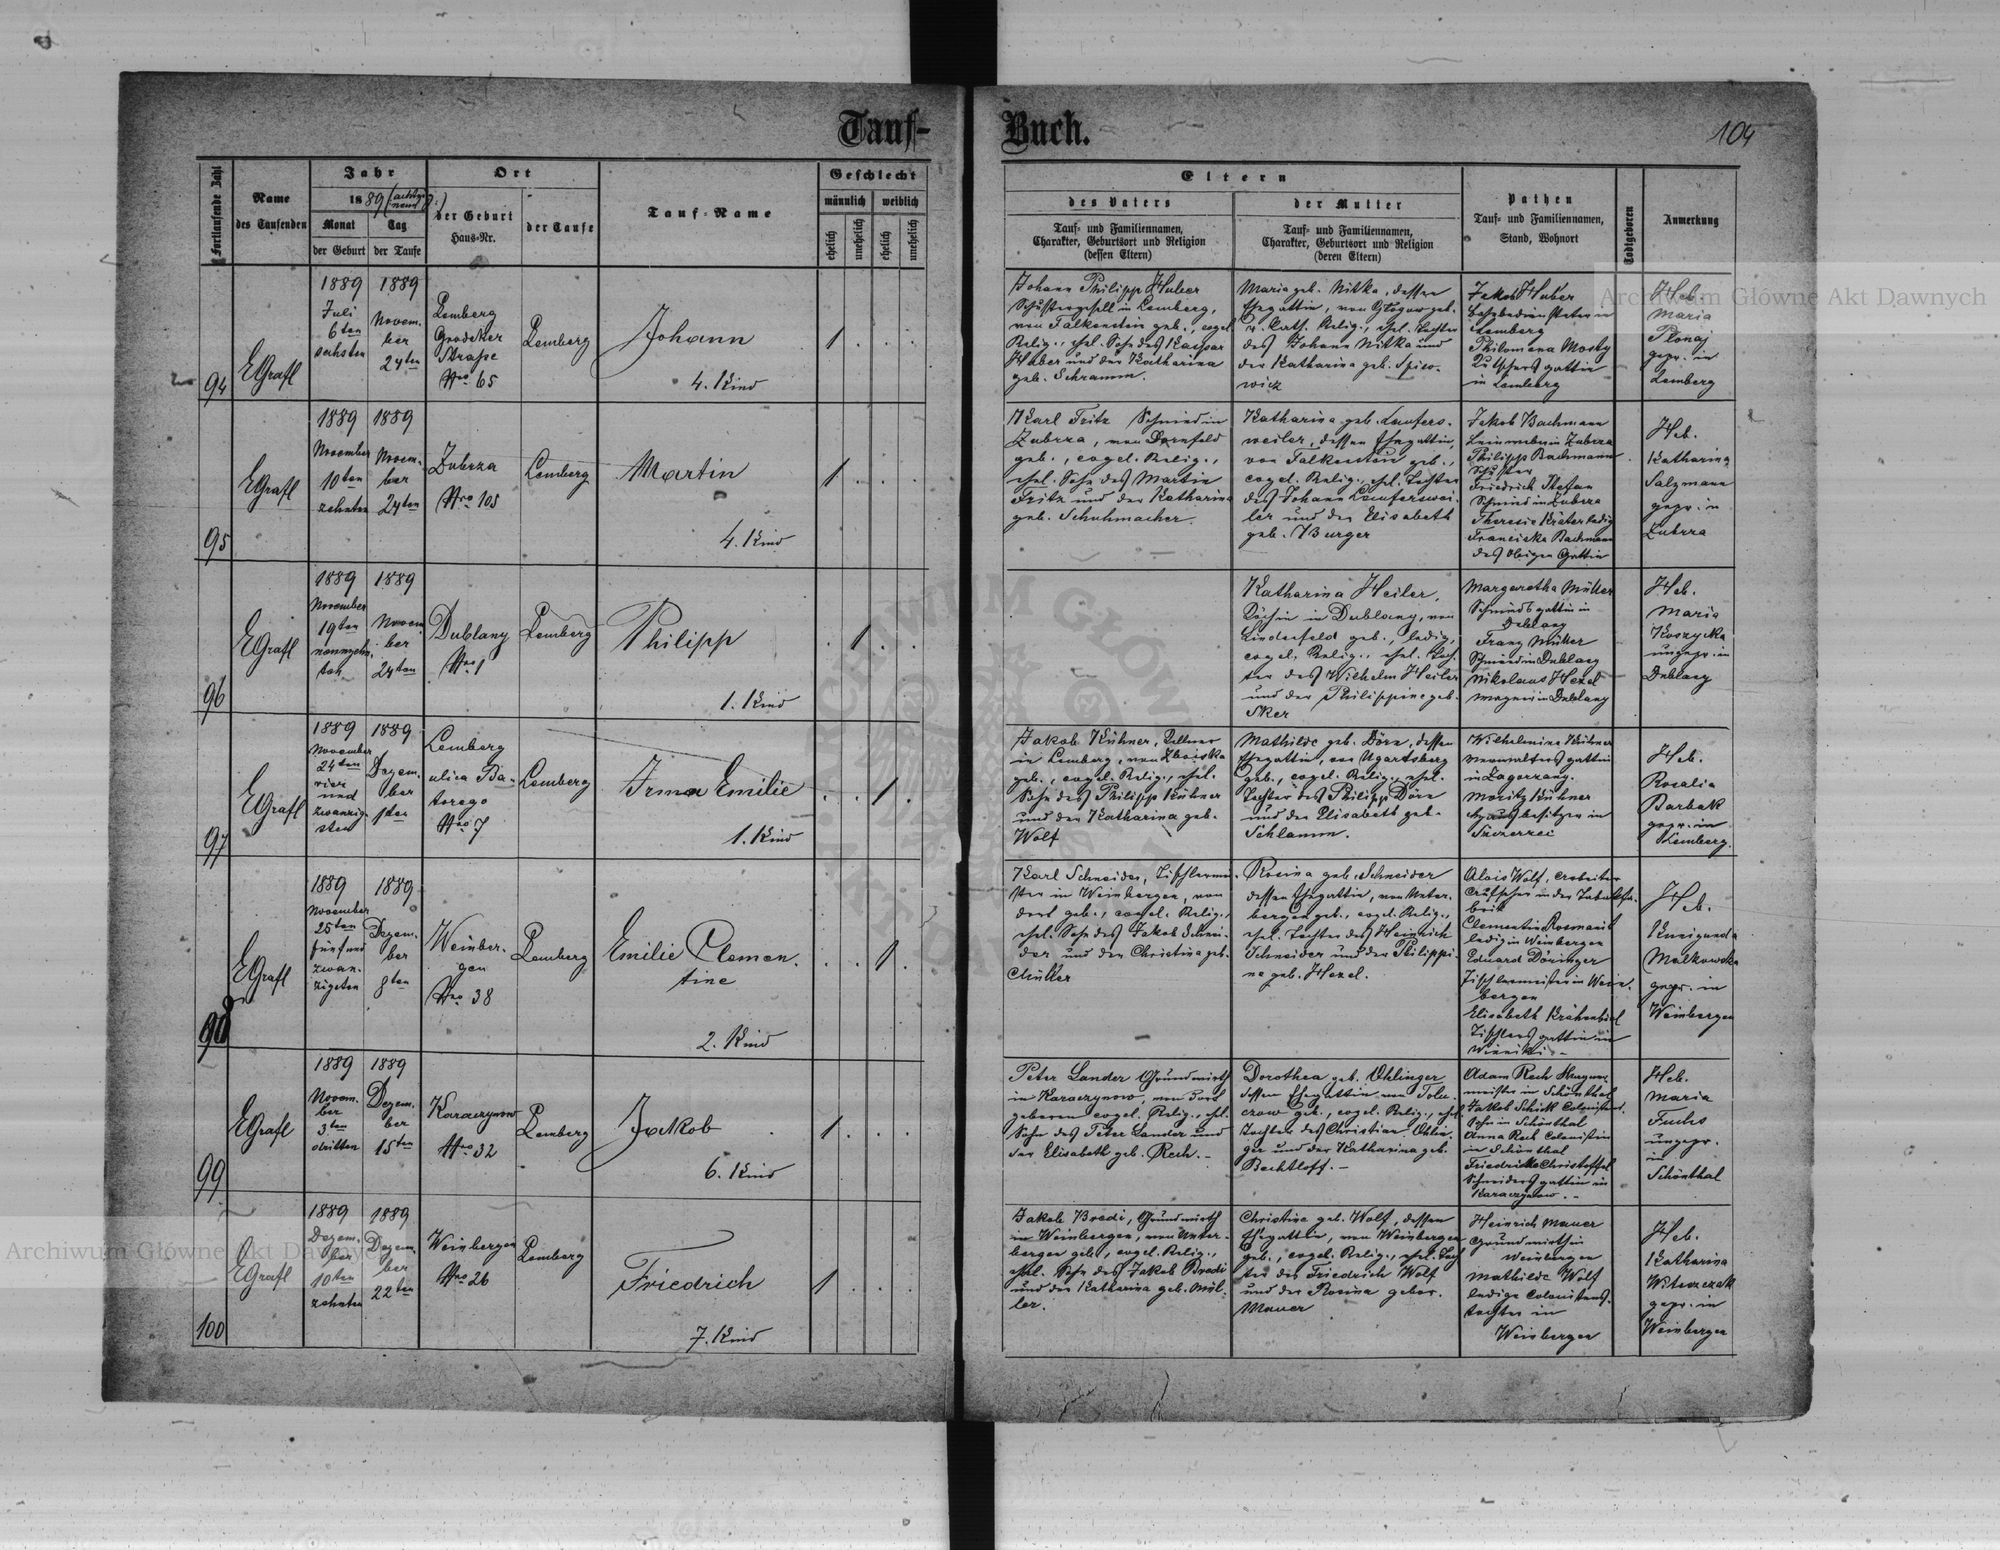 Tauf-
Buch.
104
Fortlaufende Zahl
Name
des Taufenden
Jahr
1889
Monat
der Geburt
Tag
der Taufe
Ort
der Geburt
Haus-Nr.
der Taufe
Tauf-Name
Geschlecht
männlich
weiblich
ehelich
unehelich
ehelich
unehelich
Eltern
des Vaters
Tauf- und Familiennamen,
Charakter, Geburtsort und Religion
(dessen Eltern)
der Mutter
Tauf- und Familiennamen,
Charakter, Geburtsort und Religion
(deren Eltern)
Pathen
Tauf- und Familiennamen,
Stand, Wohnort
Todtgeboren
Anmerkung
94
EGrafl
1889
Juli
6ten
sechsten
1889
Novem-
ber
24ten
Lemberg
Grodeker
Straße
Nro 65
Lemberg
Johann
4. Kind
1
Johann Philipp Huber
Schustergesell in Lemberg,
von Falkenstein geb., evgel.
Relig., ehel. Sohn des Kaspar
Huber und der Katharina
geb. Schramm.
Maria geb. Nitka, dessen
Ehegattin, von Glogow geb.
r. kath. Relig., ehel. Tochter
des Johann Nitka und
der Katharina geb. Spiro-
wicz
Jakob Huber
Lemberg
Philomena Mosky
Kutschers gattin
in Lemberg
Heb.
Maria
Plonaj
gepr. in
Lemberg
95
EGrafl
1889
November
10ten
zehnten
1889
Novem-
ber
24ten
Zubrza
Nro 105
Lemberg
Martin
4. Kind
1
Karl Fritz Schmied in
Zubrza, von Dornfeld
geb., evgel. Relig.,
ehel. Sohn des Martin
Fritz und der Katharina
geb. Schuhmacher.
Katharina geb. Laufers-
weiler, dessen Ehegattin,
von Falkenstein geb.,
evgel. Relig., ehel. Tochter
des Johann Lauferswei-
ler und der Elisabeth
geb. Burger
Jakob Bachmann
Leinweber in Zubrza
Philipp Bachmann
Schuster
Friedrich Stefan
Schmied in Zubrza
Theresia Kräter ledig
Franciska Bachmann
des Obigen Gattin
Heb.
Katharina
Salzmann
gepr. in
Zubrza
96
EGrafl
1889
November
19ten
neunzehn-
ten
1889
Novem-
ber
24ten
Dublany
Nro 1
Lemberg
Philipp
1. Kind
1
Katharina Heiler,
Köchin in Dublany, von
Lindenfeld geb., ledig,
evgel. Relig., ehel. Toch-
ter des Wilhelm Heiler
und der Philippine geb.
Sker
Margaretha Müller
Schmieds gattin in
Dublany
Franz Müller
Schmied in Dublany
Nikolaus Hexel
Wagner in Dublany
Heb.
Maria
Koszycka
ungepr. in
Dublany
97
EGrafl
1889
November
24ten
vier
und
zwanzig-
sten
1889
Dezem-
ber
1ten
Lemberg
ulica Ba-
torego
Nro 7
Lemberg
Irma Emilie
1. Kind
1
Jakob Kühner, Kellner
in Lemberg, von Zboiska
geb., evgel. Relig., ehel.
Sohn des Philipp Kühner
und der Katharina geb.
Wolf
Mathilde geb. Dörr, dessen
Ehegattin, von Ugartsberg
geb., evgel. Relig., ehel.
Tochter des Philipp Dörr
und der Elisabeth geb.
Schlamm.
Wilhelmine Kühner
Verwalters gattin
Moritz Kühner
Hausbesitzer in
Szczerzec
Heb.
Rosalia
Barbak
gepr. in
Lemberg.
98
EGrafl
1889
November
25ten
fünf und
zwan-
zigsten
1889
Dezem-
ber
8ten
Weinber-
gen
Nro 38
Lemberg
Emilie Clemen-
tine
2. Kind
1
Karl Schneider, Tischlermei-
ster in Weinbergen, von
dort geb., evgel. Relig.,
ehel. Sohn des Jakob Schnei-
der und der Christina geb.
Müller
Rosina geb. Schneider
dessen Ehegattin, von Unter-
bergen geb., evgel. Relig.,
ehel. Tochter des Heinrich
Schneider und der Philippi-
ne geb. Hexel.
Alois Wolf,
Aufseher in der Tabakfa-
brik
ledig in Weinbergen
Eduard Döringer
Tischlermeister in Wein-
bergen
Elisabeth Krähenbiel
Tischlers gattin in
Winniki
Heb.
Kunigunda
Malkowska
gepr. in
Weinbergen
99
EGrafl
1889
Novem-
ber
3ten
dritten
1889
Dezem-
ber
15ten
Karaczynow
Nro 32
Lemberg
Jakob
6. Kind
1
Peter Lander Grundwirth
in Karaczynow, von dort
geboren evgel. Relig., ehel.
Sohn des Peter Lander und
der Elisabeth geb. Rech.
Dorothea geb. Ohlinger
dessen Ehegattin von
geb., evgel. Relig., ehel.
Tochter des Christian Ohlin-
ger und der Katharina geb.
Bechtloff.
Adam Rech
meister in Schönthal
Jakob Schick Colonisten-
sohn in Schönthal
Anna Rech Colonistin
in Schönthal
Friedricke Christoffel
Schneiders gattin in
Karaczynow.
Heb.
Maria
Fuchs
ungepr.
in
Schönthal
100
EGrafl
1889
Dezem-
ber
10ten
zehnten
1889
Dezem-
ber
22ten
Weinbergen
Nro 26
Lemberg
Friedrich
7. Kind
1
Jakob Bredi, Grundwirth
in Weinbergen, von Unter-
bergen geb., evgel. Relig.,
ehel. Sohn des Jakob Bredi
und der Katharina geb. Mül-
ler.
Christine geb. Wolf, dessen
Ehegattin, von Weinbergen
geb., evgel. Relig., ehel. Toch
ter des Friedrich Wolf
und der Rosina gebor.
Mauer
Heinrich Mauer
Grundwirth in
Weinbergen
Mathilde Wolf
ledige Colonistens-
tochter in
Weinbergen
Heb.
Katharina
Witwiczak
gepr. in
Weinbergen
Archiwum Główne Akt Dawnych
Archiwum Główne Akt Dawnych